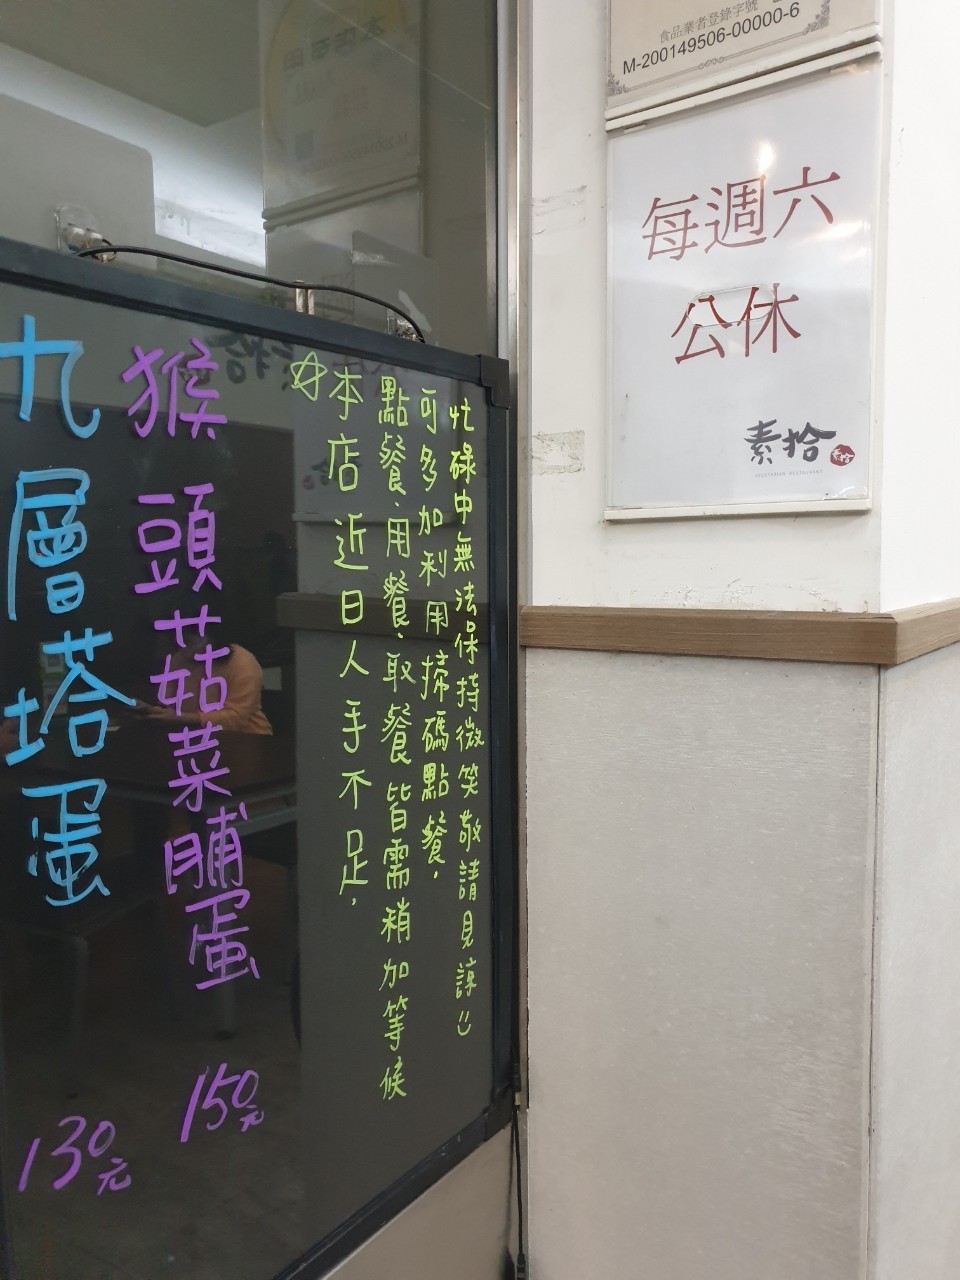 食品業者登錄字號
M-200149506-00000-6
每週六
公休
素拾
素拾
VEGETARIAN RESTAURANT
忙碌中無法保持微笑敬請見諒
可多加利用掃碼點餐.
點餐.用餐.取餐皆需稍加等候
☆本店近日人手不足.
猴頭菇菜脯蛋 150元
九層塔蛋 130元